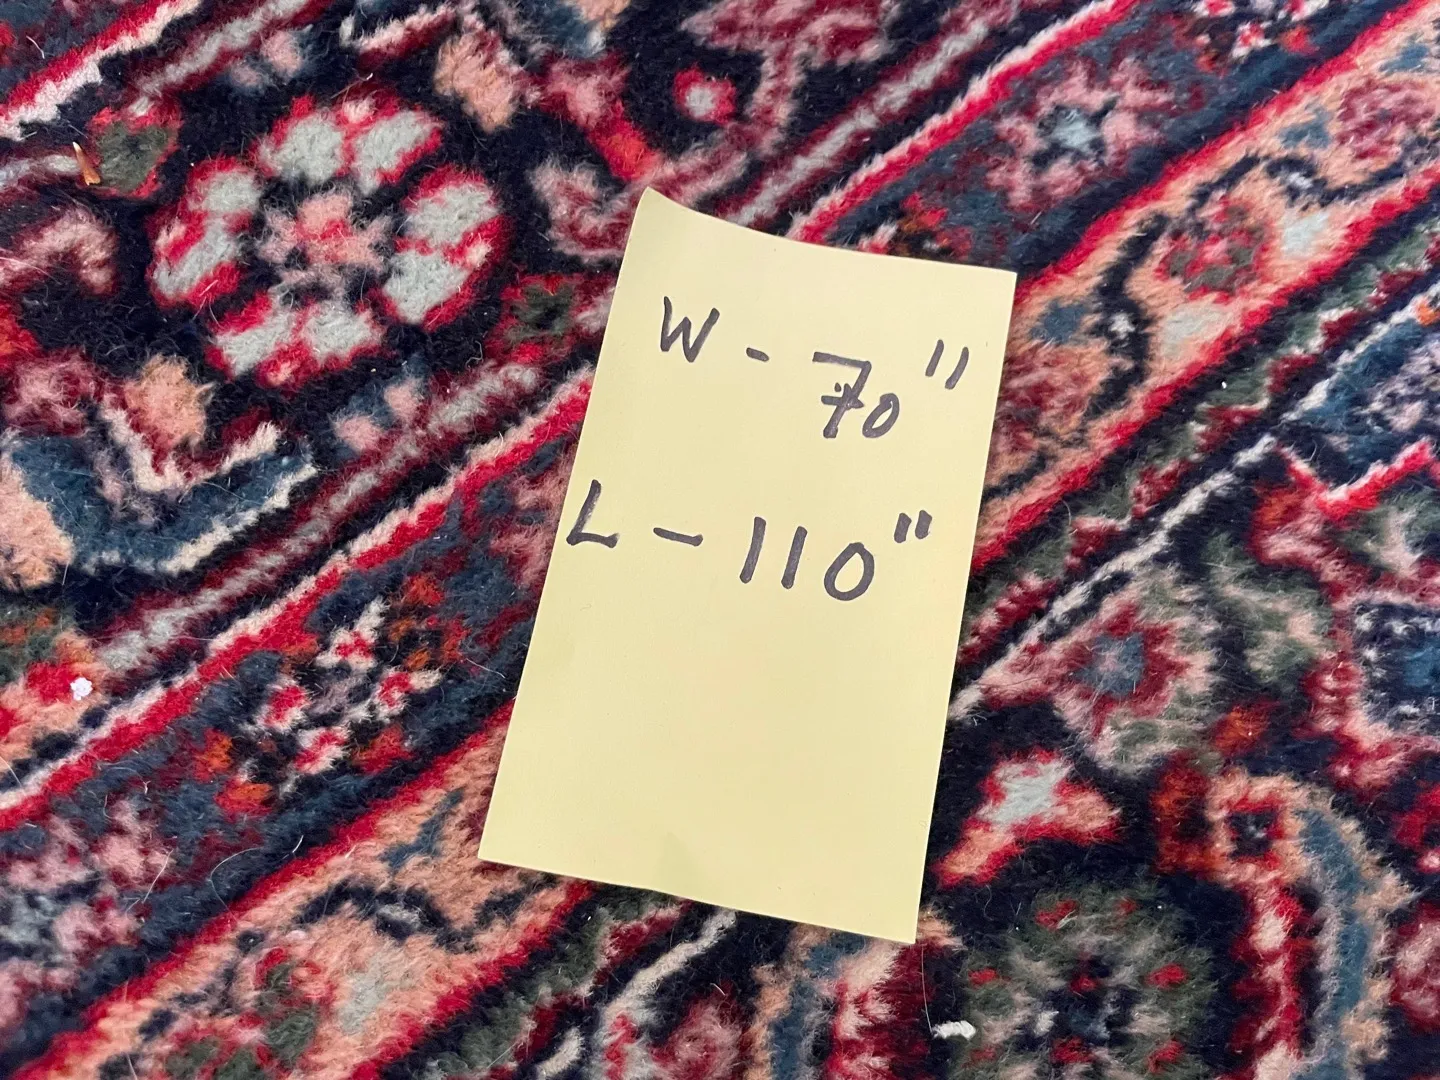 W - 70"
L - 110"